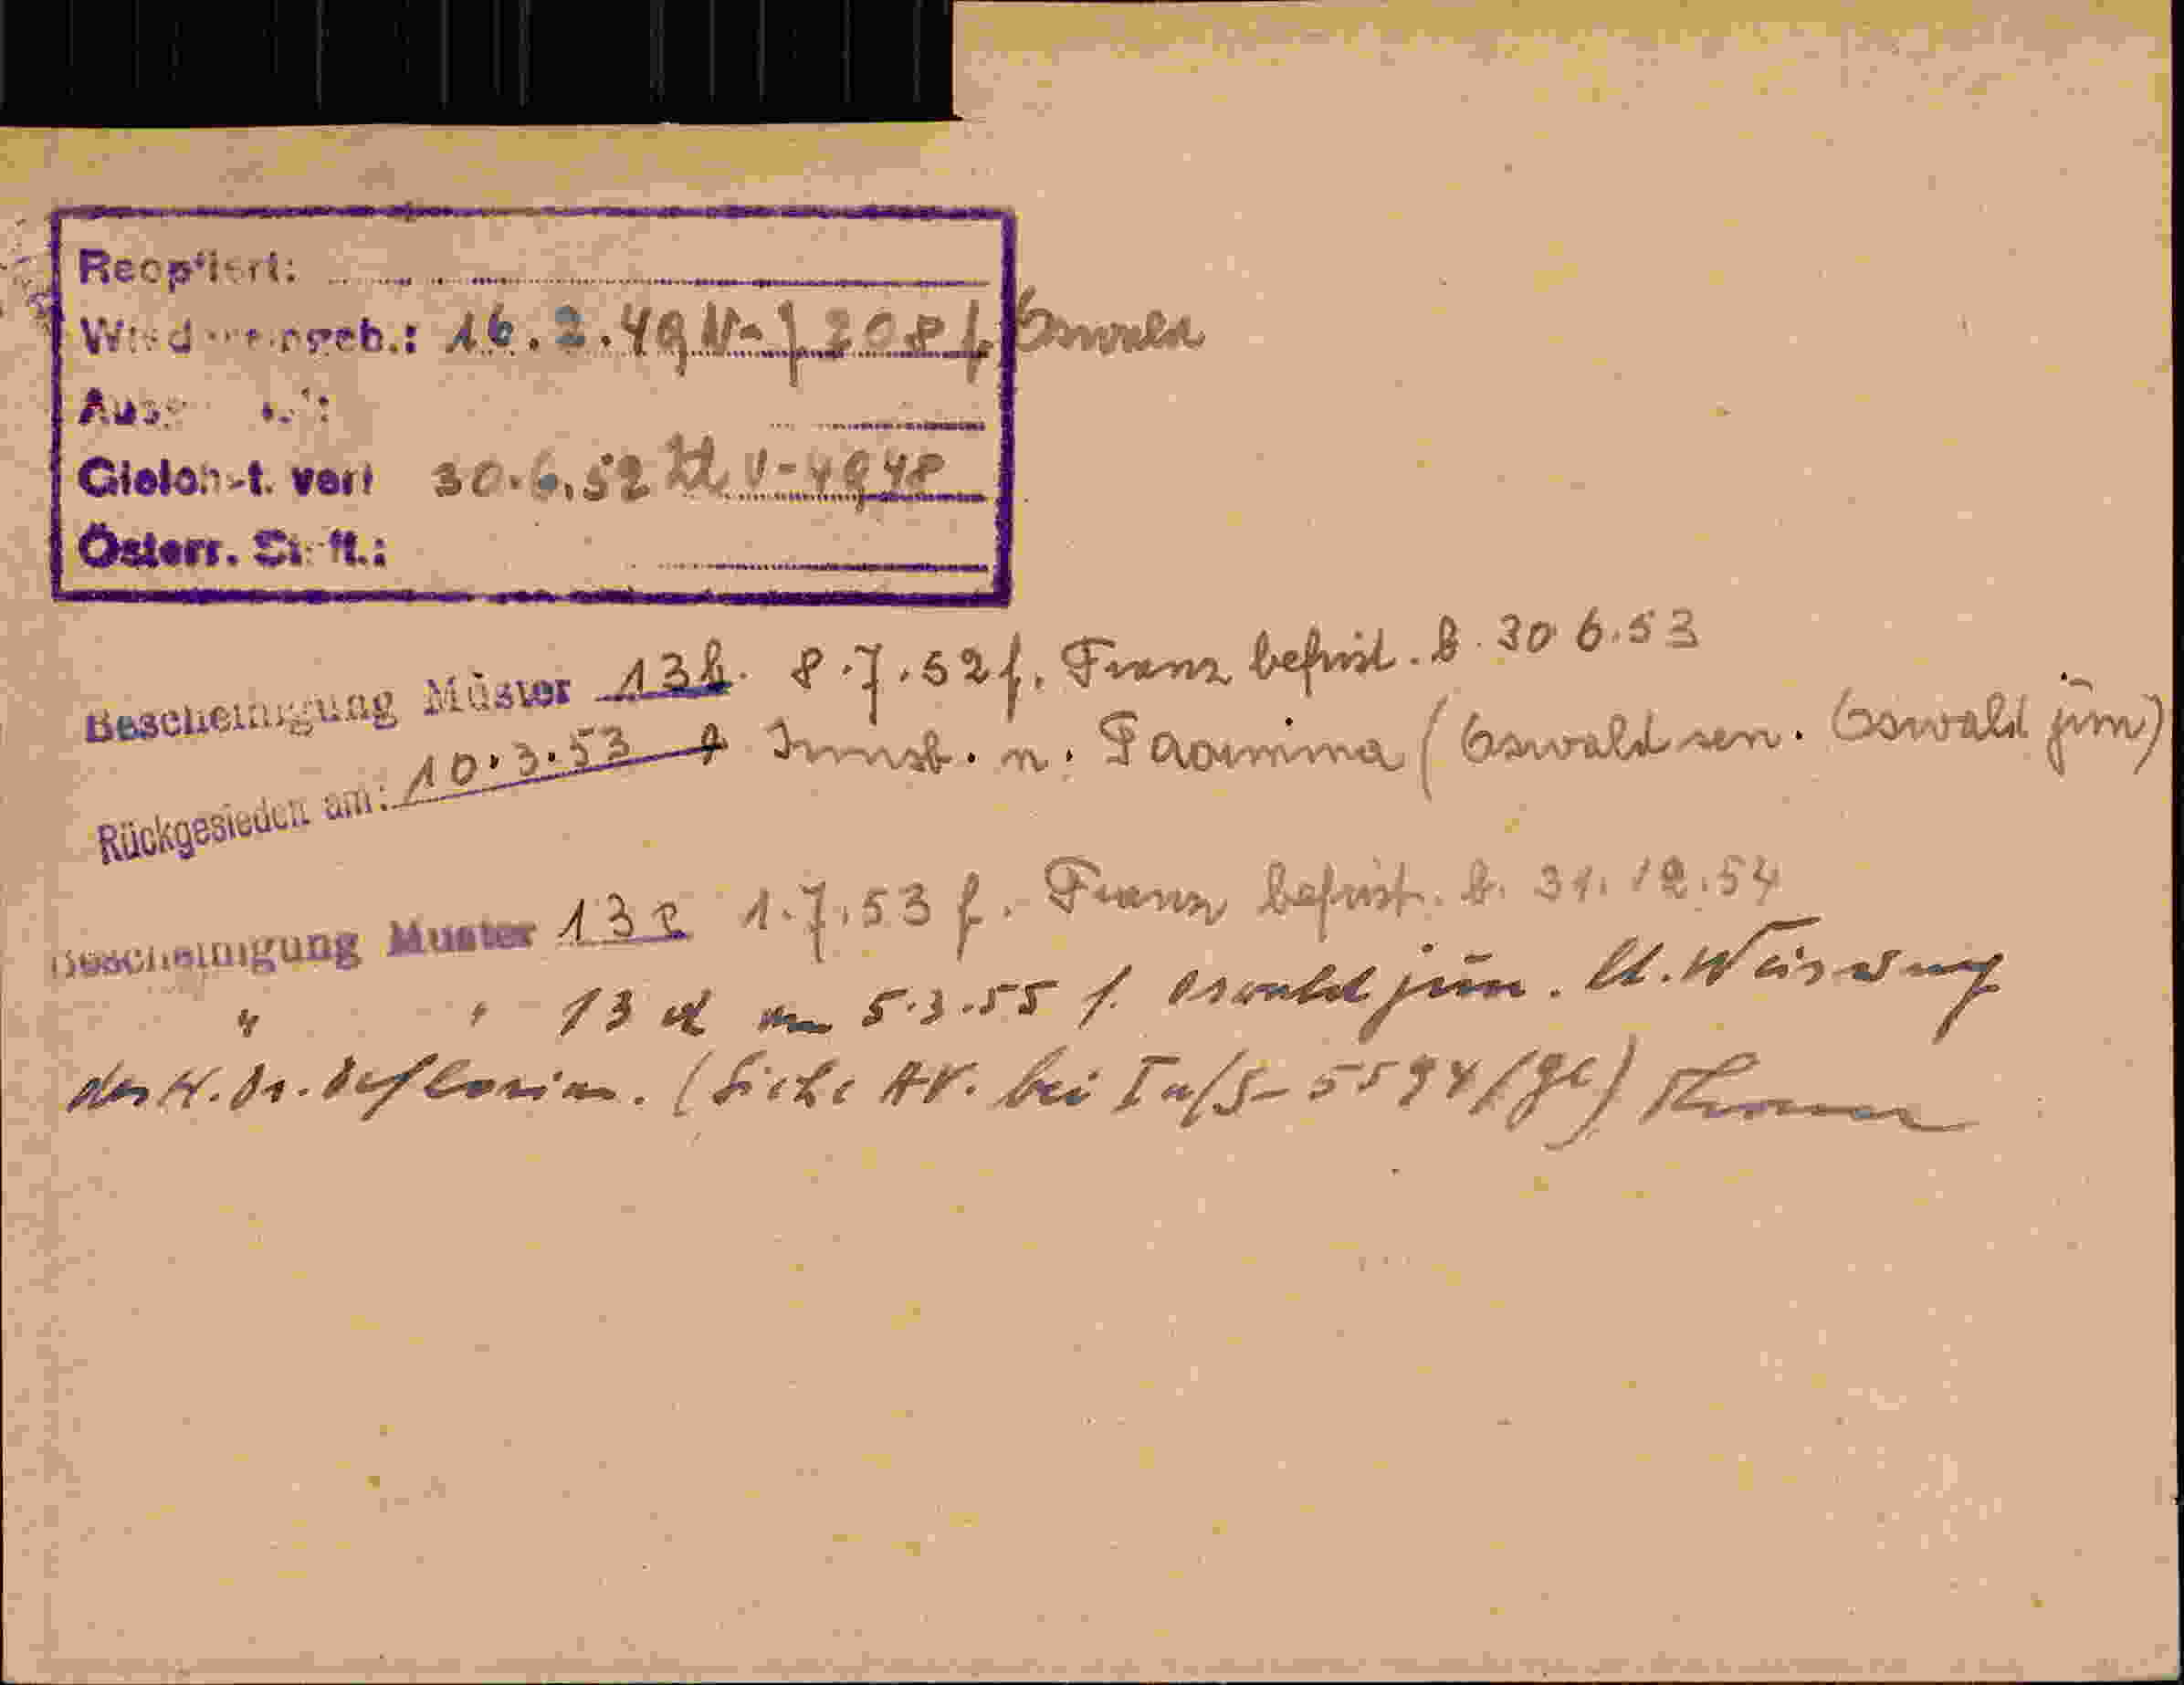 Reoptiert:
Wiedereingeb.: 16.2.49 V-7208 f. Oswald
Gleichst. verf 30.6.52 Zl V-4948
Österr. St:ft.:
Bescheinigung Muster 13b. 8.7.52 f. Franz befrist. b. 30 6.53
Rückgesiedelt am: 10.3.53 Innsb. n. Taormina (Oswald sen. Oswald jun)
Bescheinigung Muster 13c 1.7.53 f. Franz befrist. b. 31.12.54
" " 13 d am 5.3.55 f. Oswald jun. lt. Weisung
des H. Dr. Deflorian. (Siehe AV. bei In/S-5594/ge)